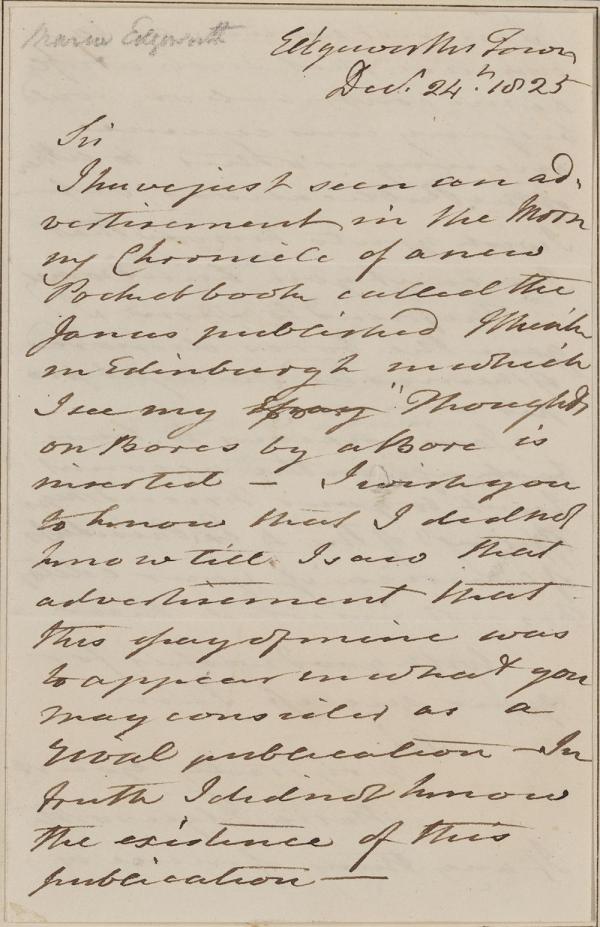 Maria Edgeworth
Edgeworths Town
Decr. 24th. 1825
Sir
I have just seen an ad-
vertisement in the Morn
ng Chronicle of a new
Pocketbook called the
Janus published I think
in Edinburgh in which
I see my "Thoughts
on Bores by a Bore is
inserted — I wish you
to know that I did not
know till I saw that
advertisement that
this essay of mine was
to appear in what you
may consider as a
rival publication — In
truth I did not know
the existence of this
publication —